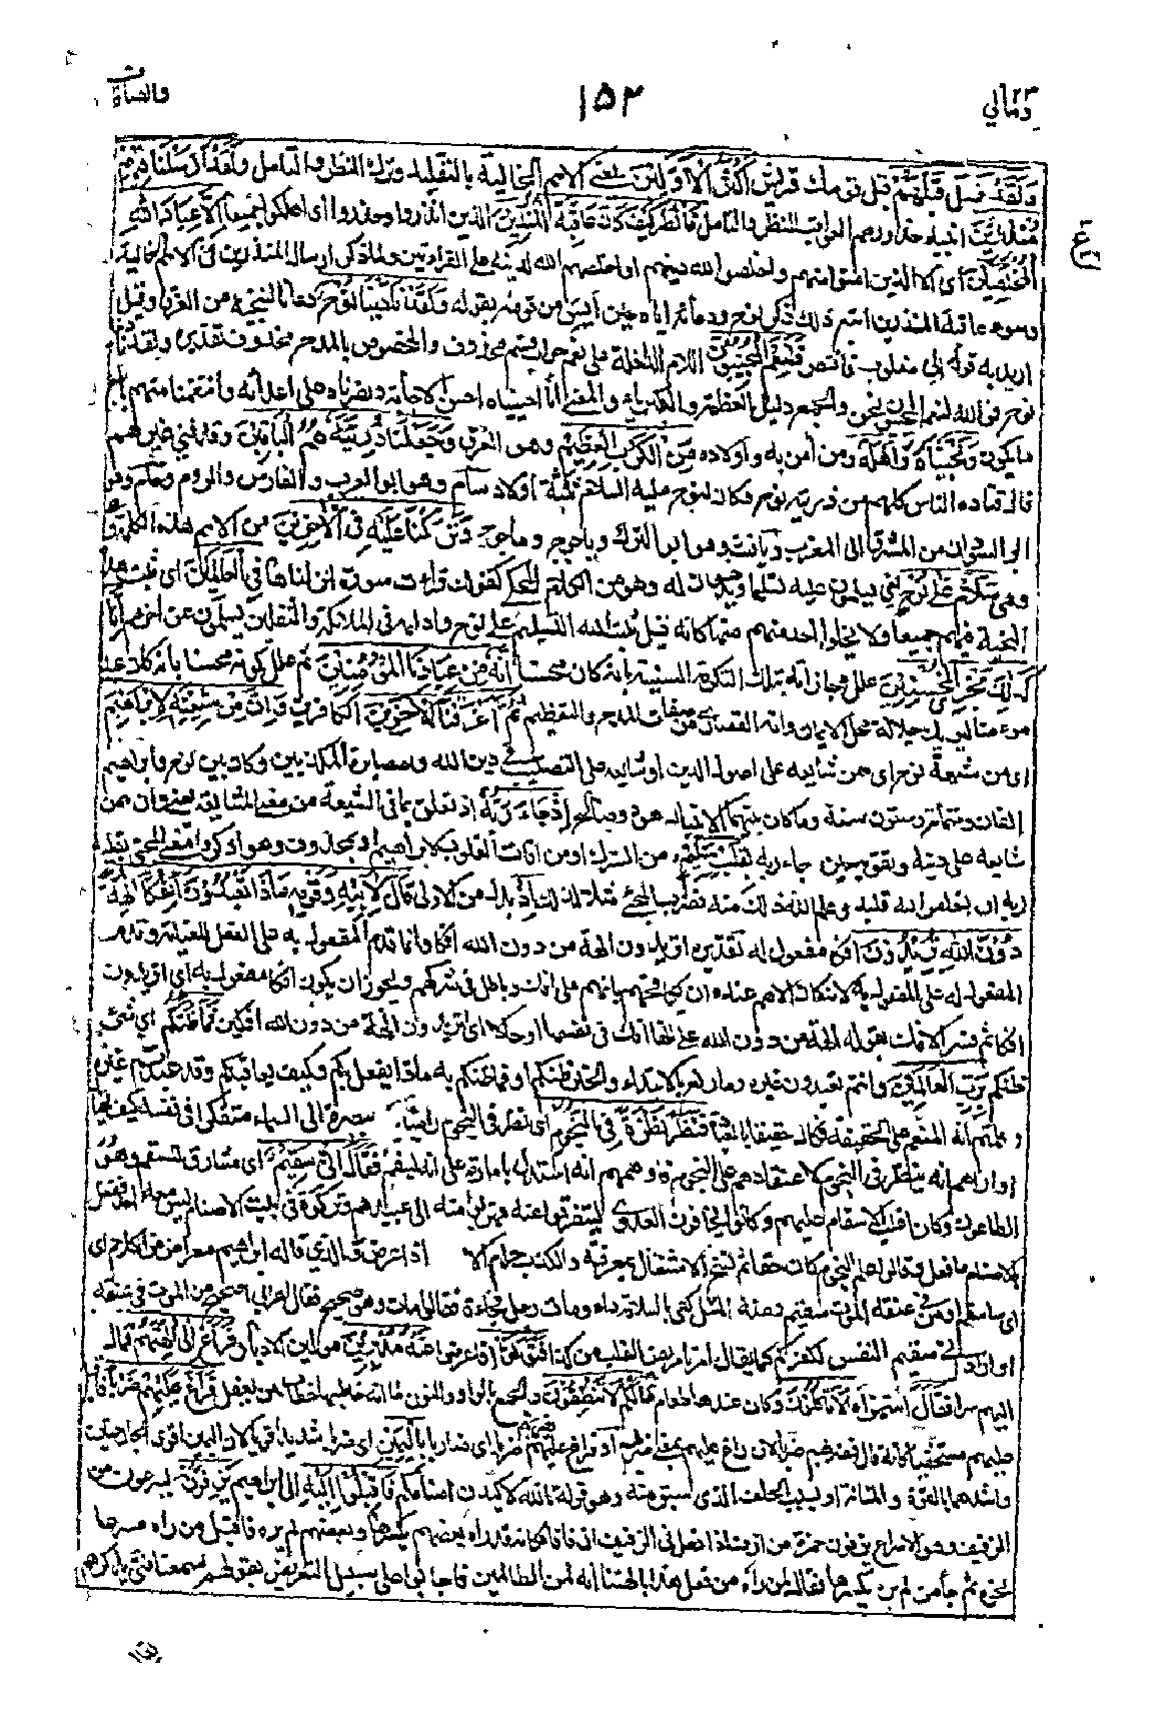 ومالي ٢٣
١٥٢
والصافات
وَلَقَدْ ضَلَّ قَبْلَهُمْ قبل قومك قريش أَكْثَرُ الْأَوَّلِينَ يعني الامم الخالية بالتقليد وترك النظر والتامل وَلَقَدْ أَرْسَلْنَا فِيهِمْ
مُنْذِرِينَ انبياء حذروهم العواقب للنظر والتامل فَانْظُرْ كَيْفَ كَانَ عَاقِبَةُ الْمُنْذَرِينَ الذين انذروا وحذروا اي اهلكوا جميعا إِلَّا عِبَادَ اللَّهِ
الْمُخْلَصِينَ اي الا الذين امنوا منهم واخلصوا لله دينهم او اخلصهم الله لدينه على القراءتين ولما ذكر ارسال المنذرين في الامم الخالية
وسوء عاقبة المنذرين اتبع ذلك ذكر نوح ودعائه اياه حين أيس من قومه بقوله وَلَقَدْ نَادَانَا نُوحٌ دعانا لننجيه من الغرق وقيل
اريد به قوله اني مغلوب فانتصر فَلَنِعْمَ الْمُجِيبُونَ اللام الداخلة على نعم جواب قسم محذوف والمخصوص بالمدح محذوف تقديره ولقد نادانا
نوح فوالله لنعم المجيبون نحن والجمع دليل العظمة والكبرياء والمعنى انا اجبناه احسن الاجابة ونصرناه على اعدائه وانتقمنا منهم بابلغ
ما يكون وَنَجَّيْنَاهُ وَأَهْلَهُ ومن امن به واولاده مِنَ الْكَرْبِ الْعَظِيمِ وهو الغرق وَجَعَلْنَا ذُرِّيَّتَهُ هُمُ الْبَاقِينَ وقد فني غيرهم
قال قتادة الناس كلهم من ذرية نوح وكان لنوح عليه السلام ثلثة اولاد سام وهو ابو العرب والفارس والروم وحام وهو
ابو السودان من المشرق الى المغرب ويافث وهو ابو الترك وياجوج وماجوج وَتَرَكْنَا عَلَيْهِ فِي الْآخِرِينَ من الامم هذه الكلمة
وهي سَلَامٌ عَلَى نُوحٍ يعني يسلمون عليه تسليما ويدعون له وهو من الكلام المحكي كقولك قرأت سورة انزلناها فِي الْعَالَمِينَ اي ثبت هذه
التحية فيهم جميعا ولا يخلوا احد منهم منها كانه قيل ثبت الله التسليم على نوح وادامه في الملائكة والثقلين يسلمون عن اخرهم إِنَّا
كَذَلِكَ نَجْزِي الْمُحْسِنِينَ علل مجازاته بتلك التكرمة السنية بانه كان محسنا إِنَّهُ مِنْ عِبَادِنَا الْمُؤْمِنِينَ ثم علل كونه محسنا بانه كان عبدا
مؤمنا ليريك جلالة محل الايمان وانه القصارى من صفات المدح والتعظيم ثُمَّ أَغْرَقْنَا الْآخَرِينَ الكافرين وَإِنَّ مِنْ شِيعَتِهِ لَإِبْرَاهِيمَ
اي من شيعة نوح اي ممن شايعه على اصول الدين او شايعه على التصلب في دين الله ومصابرة المكذبين وكان بين نوح وابراهيم
الفان وستمائة واربعون سنة وما كان بينهما الا نبيان هود وصالح إِذْ جَاءَ رَبَّهُ اذ تعلق بما في الشيعة من معنى المشايعة يعني وان ممن
شايعه على دينه وتقواه حين جاء ربه بِقَلْبٍ سَلِيمٍ من الشرك او من افات القلوب لابراهيم او بمحذوف وهو اذكر ومعنى المجيء بقلبه
ربه انه اخلص لله قلبه وعلم الله ذلك منه فضرب المجيء مثلا لذلك إِذْ بدل من الاولى قَالَ لِأَبِيهِ وَقَوْمِهِ مَاذَا تَعْبُدُونَ أَئِفْكًا آلِهَةً
دُونَ اللَّهِ تُرِيدُونَ افكا مفعول له تقديره اتريدون الهة من دون الله افكا وانما قدم المفعول به على الفعل للعناية وقدم
المفعول له على المفعول به لانه كان الاهم عنده ان يكافحهم بانهم على افك وباطل في شركهم ويجوز ان يكون افكا مفعولا به اي اتريدون
افكا ثم فسر الافك بقوله الهة من دون الله على انها افك في نفسها او حالا اي اتريدون الهة من دون الله افكين فَمَا ظَنُّكُمْ اي شيء
ظنكم بِرَبِّ الْعَالَمِينَ وانتم تعبدون غيره وما رفع بالابتداء والخبر ظنكم او فما ظنكم به ماذا يفعل بكم وكيف يعاقبكم وقد عبدتم غيره
وعلمتم انه المنعم على الحقيقة فكان حقيقا بالعبادة فَنَظَرَ نَظْرَةً فِي النُّجُومِ اي نظر في النجوم راميا ببصره الى السماء متفكرا في نفسه كيف يحتال
او اراهم انه ينظر في النجوم لاعتقادهم على النجوم فاوهمهم انه استدل بامارة على انه يسقم فَقَالَ إِنِّي سَقِيمٌ اي مشارف للسقم وهو
الطاعون وكان اغلب الاسقام عليهم وكانوا يخافون العدوى ليتفرقوا عنه فهربوا منه الى عيدهم وتركوه في بيت الاصنام ليس معه احد ففعل
بالاصنام ما فعل وقالوا علم النجوم كان حقا ثم نسخ الاشتغال بمعرفته والكذب حرام الا اذا عرض والذي قاله ابراهيم معراض من الكلام اي
اي ساسقم او من في عنقه الموت سقيم ومنه المثل كفى بالسلامة داء ومات رجل فجاءة فقالوا مات وهو صحيح فقال اعرابي اصحيح من الموت في عنقه
او اراد اني سقيم النفس لكفركم كما يقال انا مريض القلب من كذا فَتَوَلَّوْا فاعرضوا عَنْهُ مُدْبِرِينَ مولين الادبار فَرَاغَ إِلَى آلِهَتِهِمْ فمال
اليهم سرا فَقَالَ استهزاء أَلَا تَأْكُلُونَ وكان عندها طعام مَا لَكُمْ لَا تَنْطِقُونَ والجمع بالواو والنون لما انه خاطبها خطاب من يعقل فَرَاغَ عَلَيْهِمْ ضَرْبًا فاقبل
عليهم مستخفيا كانه قال فضربهم ضربا لان راغ عليهم بمعنى ضربهم او فراغ عليهم يضربهم ضربا اي ضاربا بِالْيَمِينِ اي ضربا شديدا بالقوة لان اليمين اقوى الجارحتين
واشدهما بالقوة والمتانة او بسبب الحلف الذي سبق منه وهو قوله تالله لاكيدن اصنامكم فَأَقْبَلُوا إِلَيْهِ الى ابراهيم يَزِفُّونَ يسرعون من
الزفيف وهو الاسراع يزفون حمزة من ازف اذا دخل في الزفيف اي فكانه قد راه بعضهم يكسرها وبعضهم لم يره فاقبل من راه مسرعا
نحوه ثم جاء من لم يره يكسرها فقال لمن راه من فعل هذا بالهتنا انه لمن الظالمين فاجابوه على سبيل التعريض بقولهم سمعنا فتى يذكرهم